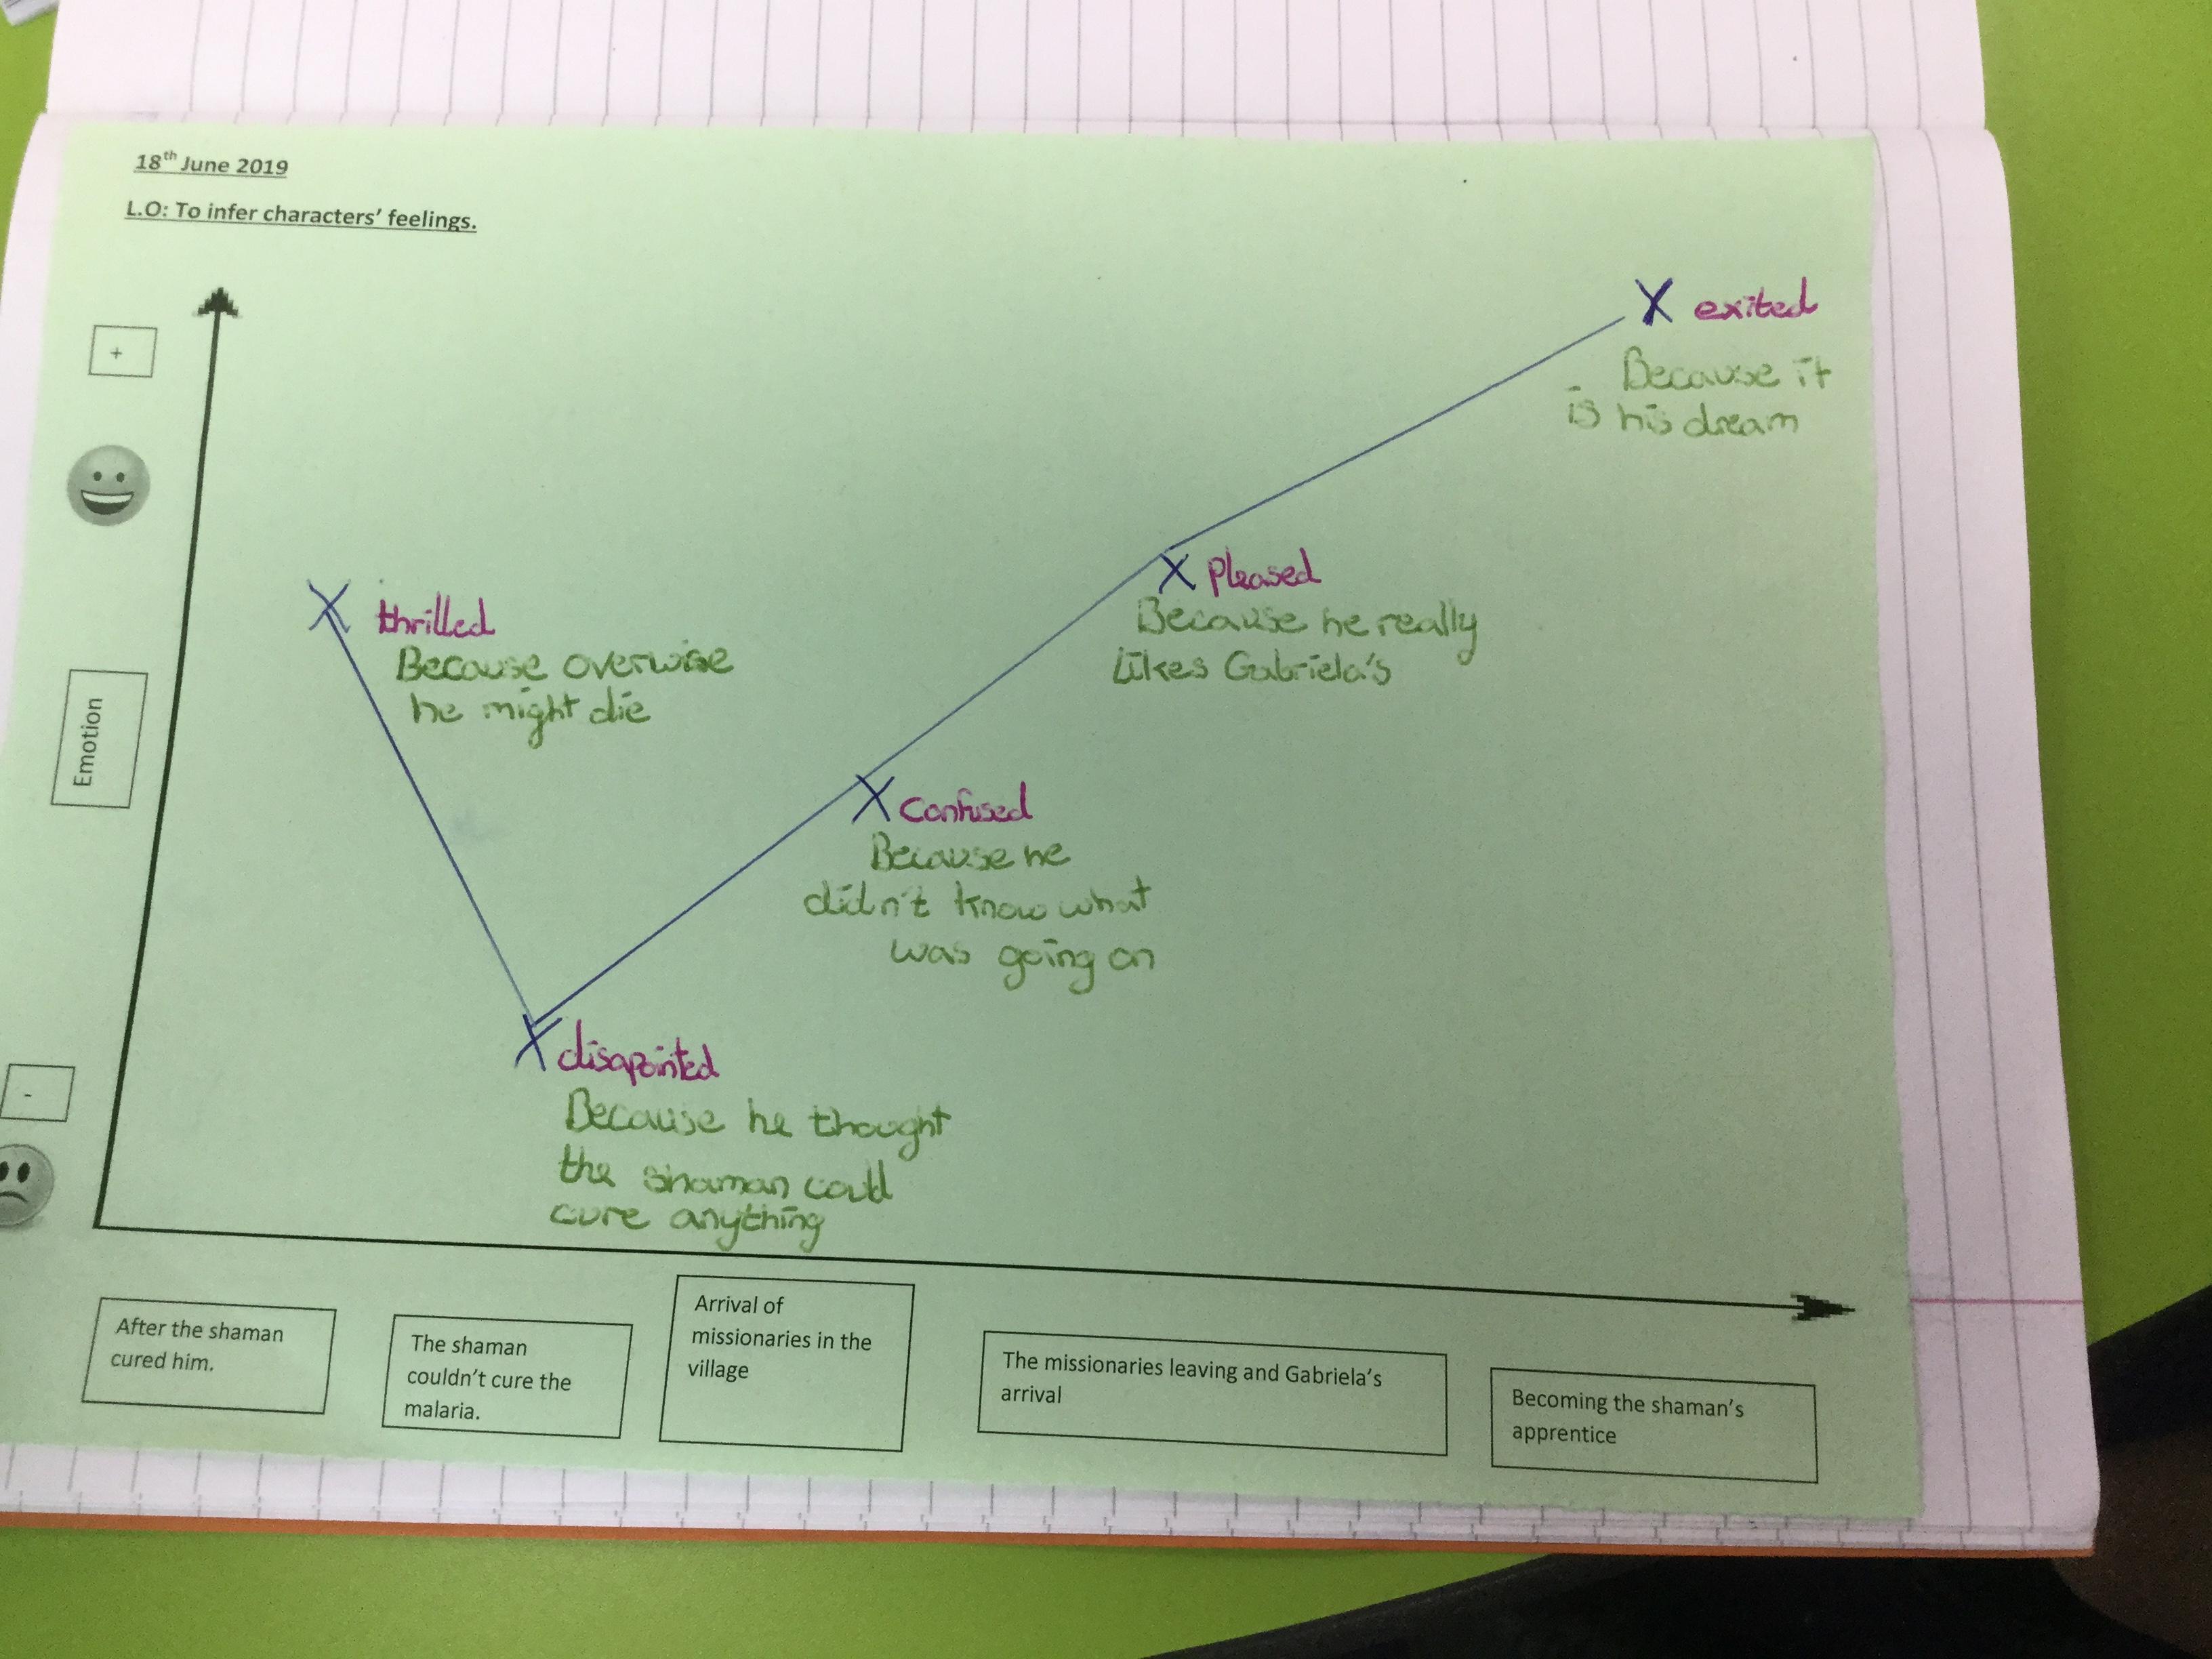 18th June 2019
L.O: To infer characters' feelings.
+
Emotion
-
exited
Because it
is his dream
thrilled
Because overwise
he might die
Pleased
Because he really
Likes Gabriela's
Confused
Because he
didn't know what
was going on
disapointed
Because he thought
the shaman could
cure anything
After the shaman
cured him.
The shaman
couldn't cure the
malaria.
Arrival of
missionaries in the
village
The missionaries leaving and Gabriela's
arrival
Becoming the shaman's
apprentice